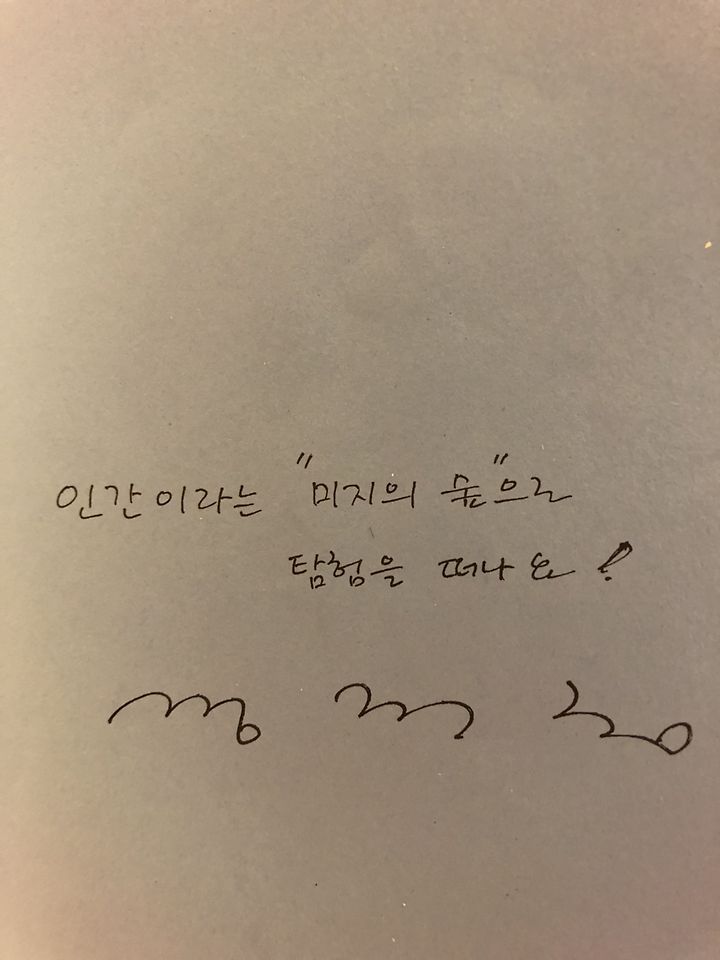 인간이라는 "미지의 숲"으로
탐험을 떠나요!